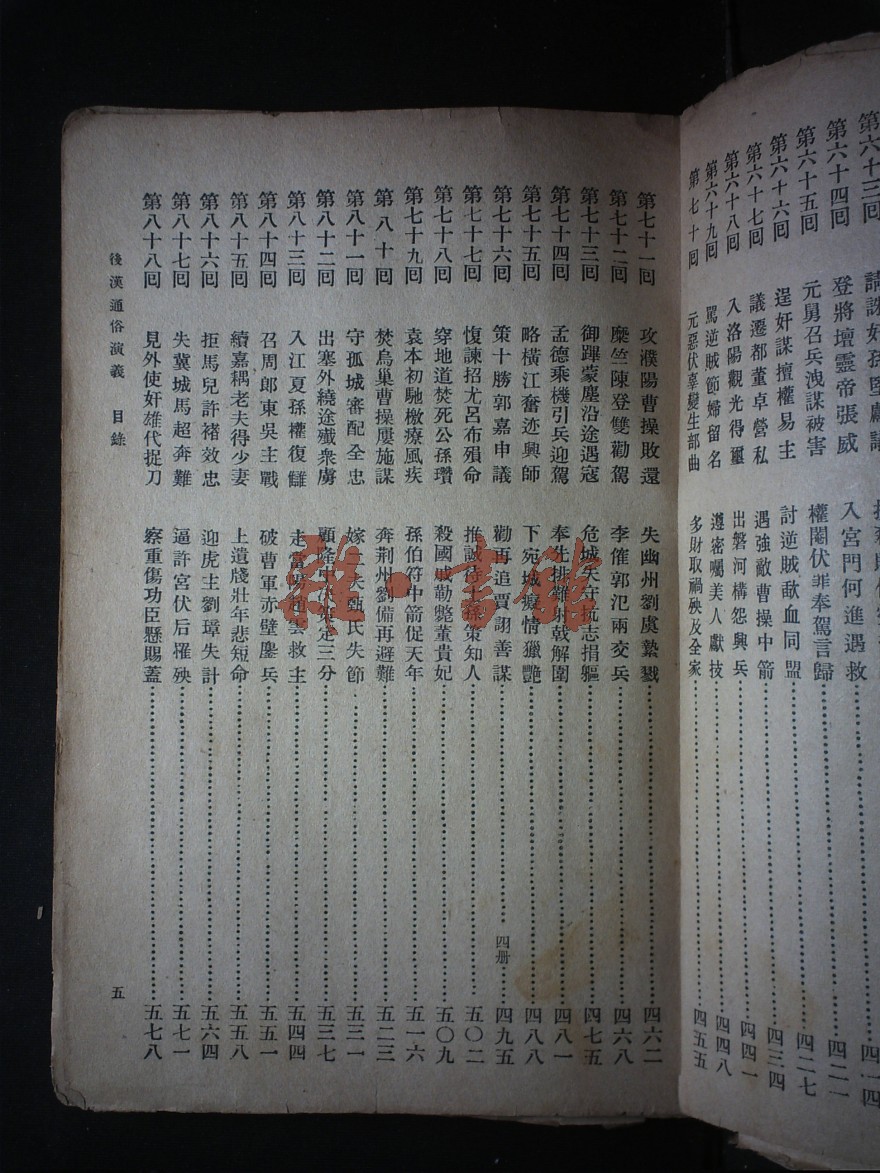 第六十三回
第六十四回 登將壇靈帝張威 入宮門何進遇救 四二一
第六十五回 元舅召兵洩謀被害 權閹伏罪奉駕言歸 四二七
第六十六回 逞奸謀擅權易主 討逆賊歃血同盟 四三四
第六十七回 議遷都董卓營私 遇強敵曹操中箭 四四一
第六十八回 入洛陽觀光得璽 出磐河構怨興兵 四四八
第六十九回 罵逆賊節婦留名 遵密囑美人獻技
第七十回 元惡伏辜變生部曲 多財取禍殃及全家 四五五
第七十一回 攻濮陽曹操敗還 失幽州劉虞縶戮 四六二
第七十二回 糜竺陳登雙勸駕 李傕郭汜兩交兵 四六八
第七十三回 御蹕蒙塵沿途遇寇 危城失守抗志捐軀 四七五
第七十四回 孟德乘機引兵迎駕 奉先排難射戟解圍 四八一
第七十五回 略橫江奮迹興師 下宛城癡情獵艷 四八八
第七十六回 策十勝郭嘉申議 勸再追賈詡善謀 四册 四九五
第七十七回 愎諫招尤呂布殞命 推誠待士孫策知人 五〇二
第七十八回 穿地道焚死公孫瓚 殺國戚勒斃董貴妃 五〇九
第七十九回 袁本初馳檄療風疾 孫伯符中箭促天年 五一六
第八十回 焚烏巢曹操屢施謀 奔荆州劉備再避難 五二三
第八十一回 守孤城審配全忠 嫁 夫甄氏失節 五三一
第八十二回 出塞外繞途殲衆虜 顧隆中 定三分 五三七
第八十三回 入江夏孫權復讎 走當陽趙雲救主 五四四
第八十四回 召周郎東吳主戰 破曹軍赤壁鏖兵 五五一
第八十五回 續嘉耦老夫得少妻 上遺牋壯年悲短命 五五八
第八十六回 拒馬兒許褚效忠 迎虎主劉璋失計 五六四
第八十七回 失冀城馬超奔難 逼許宮伏后罹殃 五七一
第八十八回 見外使奸雄代捉刀 察重傷功臣懸賜蓋 五七八
後漢通俗演義 目錄 五
雜·書館